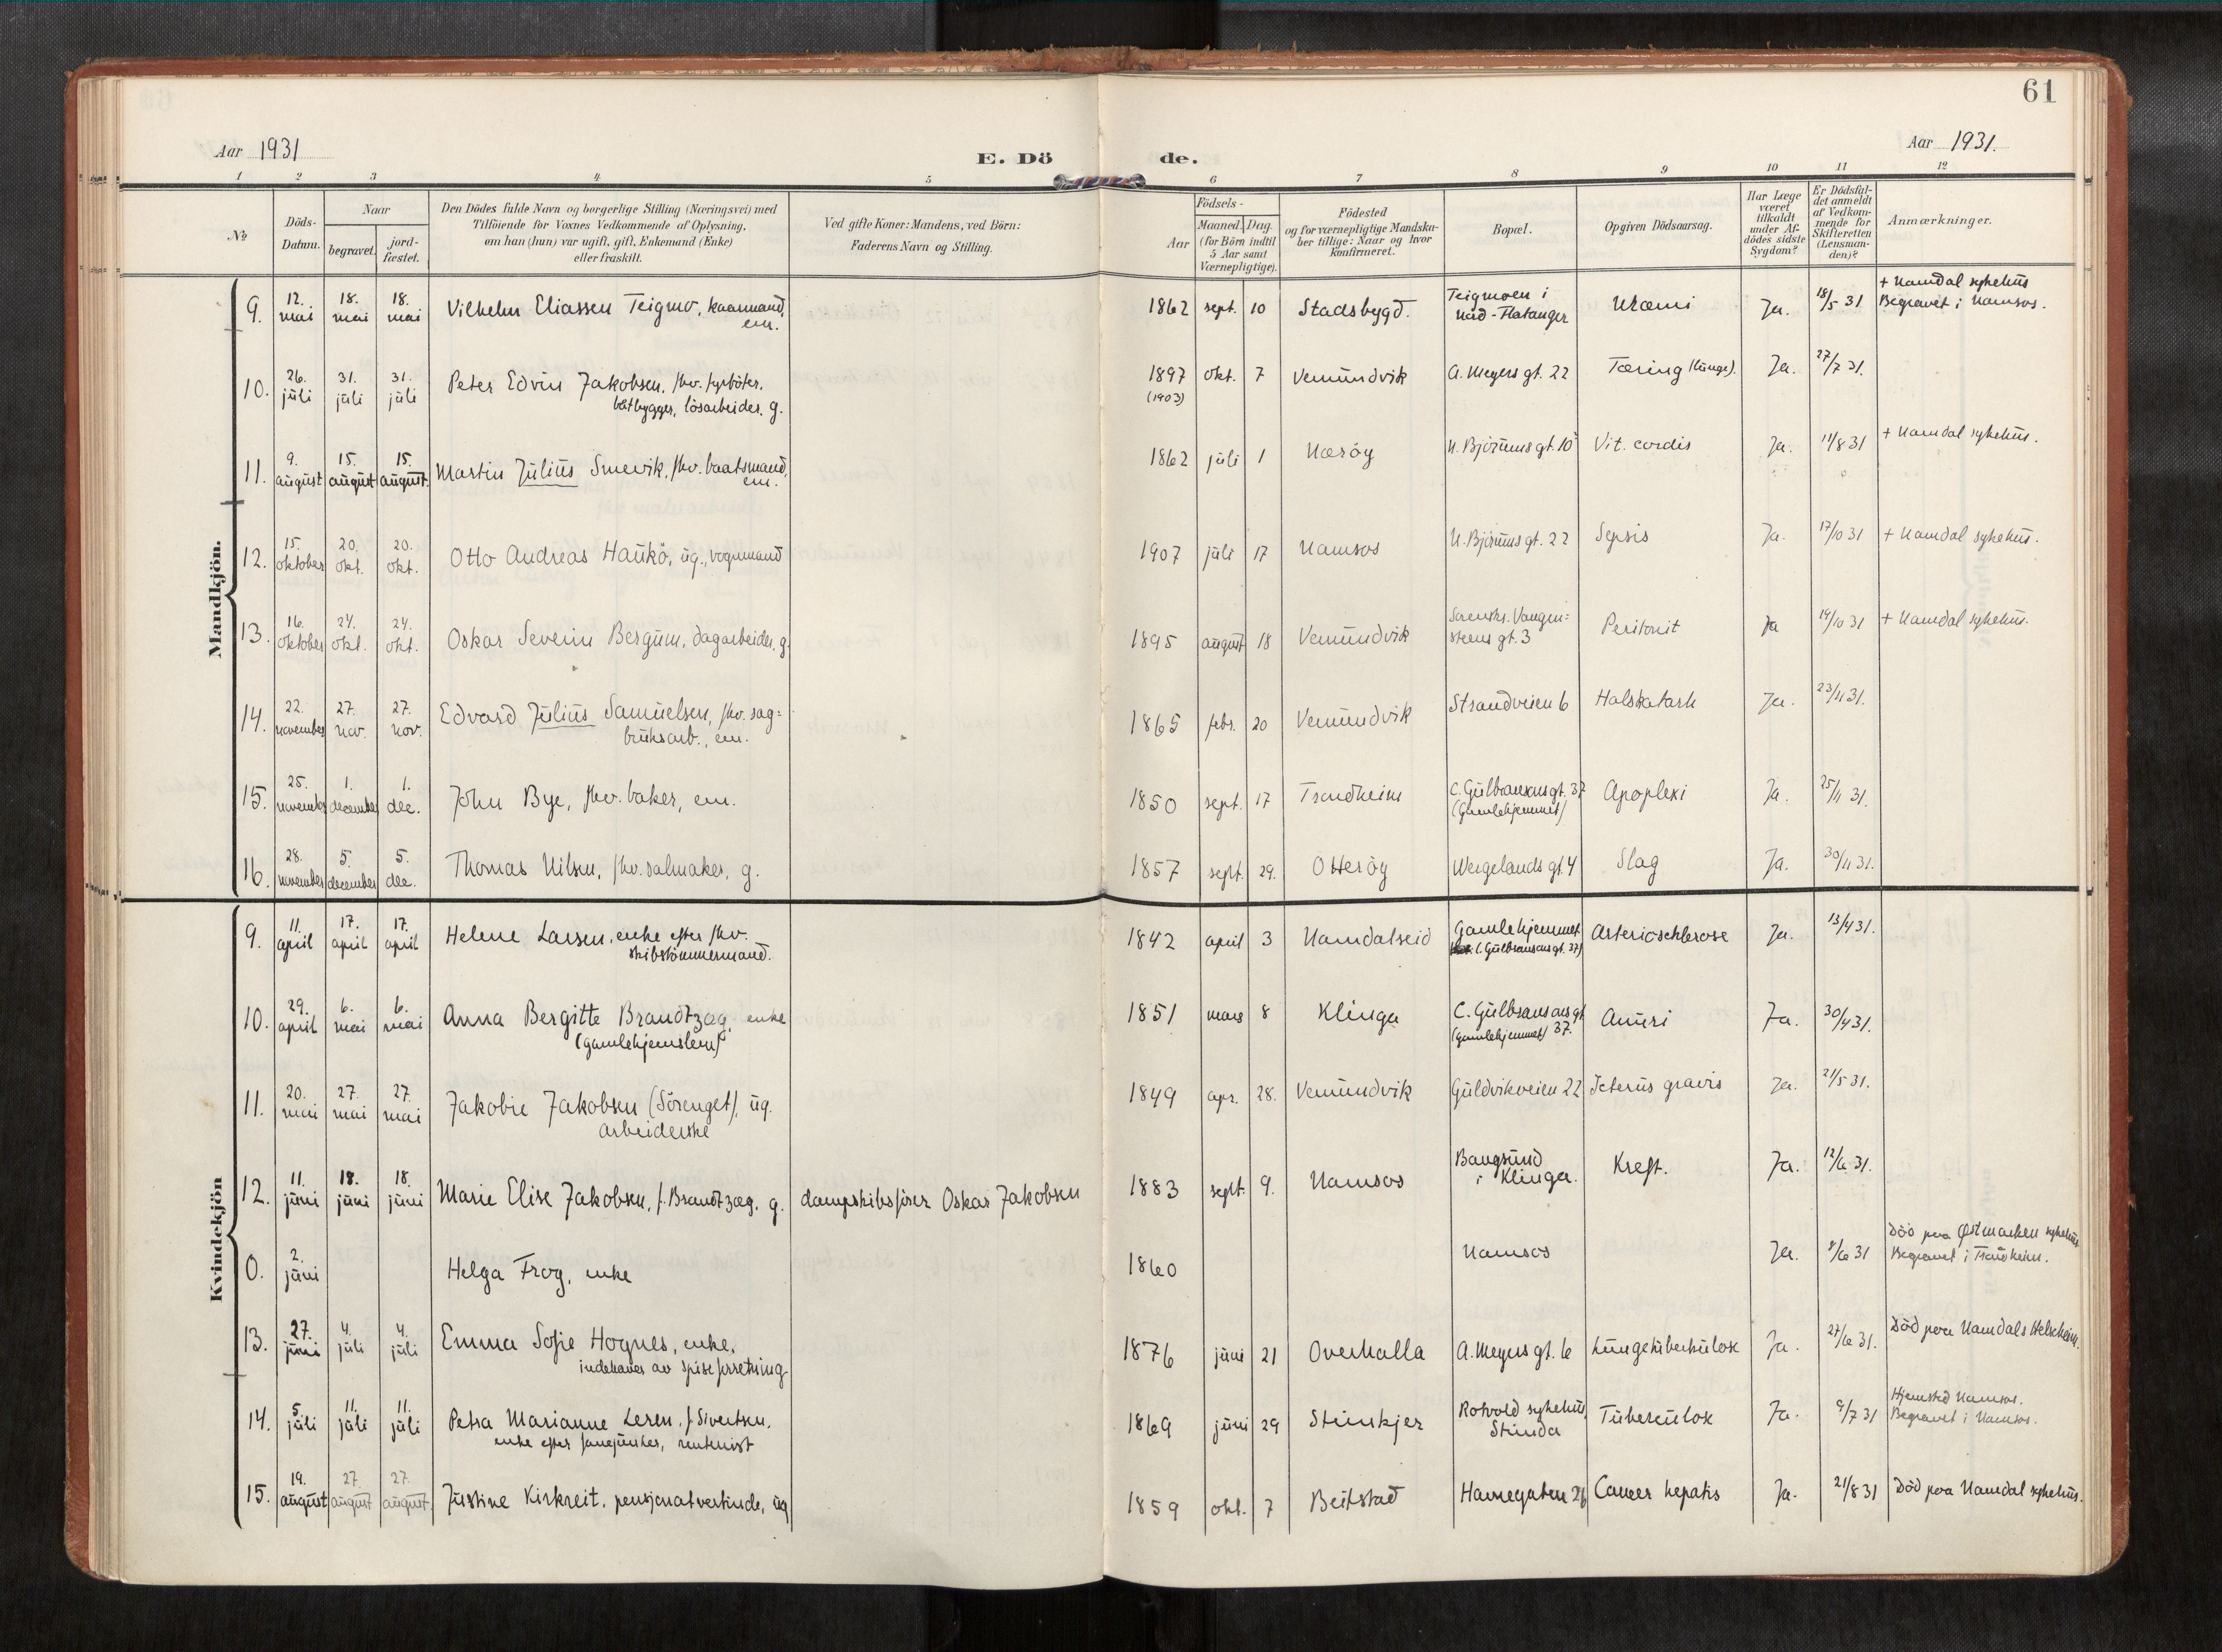 61
Aar 1931
E. Dö
de.
Aar 1931.
1 2 3 4 5 6 7 8 9 10 11 12
No
Döds-
Datum.
Naar
begravet.
jord-
fæstet.
Den Dödes fulde Navn og borgerlige Stilling (Næringsvei) med
Tilföiende for Voxnes Vedkommende af Oplysning,
om han (hun) var ugift, gift, Enkemand (Enke)
eller fraskilt.
Ved gifte Koner: Mandens, ved Börn:
Faderens Navn og Stilling.
Födsels-
Aar
Maaned. Dag.
(for Börn indtil
5 Aar samt
Værnepligtige).
Födested
og for værnepligtige Mandska-
ber tillige: Naar og hvor
konfirmeret.
Bopæl.
Opgiven Dödsaarsag.
Har Læge
været
tilkaldt
under Af-
dödes sidste
Sygdom?
Er Dödsfal-
det anmeldt
af Vedkom-
mende for
Skifteretten
(Lensman-
den)?
Anmærkninger.
Mandkjön.
9. 12. mai 18. mai 18. mai Vilhelm Eliassen Teigmo, kaarmand, em. 1862 sept. 10 Stadsbygd. Teigmoen i Nord-Flatanger Uræmi Ja. 18/5 31 + Namdal sykehus Begravet i Namsos.
10. 26. juli 31. juli 31. juli Peter Edvin Jakobsen, fhv. fyrböter, båtbygger, lösarbeider, g. 1897 (1903) okt. 7 Vemundvik A. Meyers gt. 22 Tæring (lunge). Ja. 27/7 31.
11. 9. august 15. august 15. august. Martin Julius Smevik, fhv. baatsmand, em. 1862 juli 1 Næröy N. Bjørumsgt. 10 Vit. cordis Ja. 11/8 31 + Namdal sykehus.
12. 15. oktober 20. okt. 20. okt. Otto Andreas Haukö, ug., vognmand 1907 juli 17 Namsos N. Bjørumsgt. 22 Sepsis Ja. 17/10 31 + Namdal sykehus.
13. 16. oktober 24. okt. 24. okt. Oskar Severin Bergum, dagarbeider, g. 1895 august 18 Vemundvik gt. 3 Peritonit Ja 19/10 31 + Namdal sykehus.
14. 22. november 27. nov. 27. nov. Edvard Julius Samuelsen, fhv. sag= bruksarb., em. 1865 febr. 20 Vemundvik Strandveien 6 Halskatarh Ja. 23/11 31.
15. 25. november 1. december 1. dec. John Bye, fhv. baker, em. 1850 sept. 17 Trondheim C. Gulbransonsgt. 37 (Gamlehjemmet) Apoplexi Ja. 25/11 31.
16. 28. november 5. december 5. dec. Thomas Nilsen, fhv. salmaker, g. 1857 sept. 29. Otteröy Wergelandsgt. 4 Slag Ja. 30/11 31.
Kvindekjön
9. 11. april 17. april 17. april Helene Larsen, enke efter fhv. skibstömmermand. 1842 april 3 Namdalseid Gamlehjemmet (C. Gulbransonsgt. 37) Arterioschlerose Ja. 13/4 31.
10. 29. april 6. mai 6. mai Anna Bergitte Brandtzæg, enke (gamlehjemslem) 1851 mars 8 Klinga C. Gulbransonsgt (gamlehjemmet) 37. Anuri Ja. 30/4 31.
11. 20. mai 27. mai 27. mai Jakobie Jakobsen (Sörenget), ug. arbeiderske 1849 apr. 28. Vemundvik Guldvikveien 22 Icterus gravis Ja. 21/5 31.
12. 11. juni 18. juni 18. juni Marie Elise Jakobsen, f. Brandtzæg, g. dampskibsfører Oskar Jakobsen 1883 sept. 9. Namsos Bangsund i Klinga. Kreft. Ja. 12/6 31.
0. 2. juni Helga Frog, enke 1860 Namsos Ja. 8/6 31 Död paa Østmarken sykehus Begravet i Trondheim.
13. 27. juni 4. juli 4. juli Emma Sofie Hognes, enke, indehaver av spiseforretning 1876 juni 21 Overhalla A. Meyers gt. 6 Lungetuberkulose Ja. 27/6 31. Död paa Namdals Helseheim.
14. 5. juli 11. juli 11. juli Petra Marianne Leren, f. Sivertsen. enke efter fanejunker, rentenist 1869 juni 29 Steinkjer Rotvold sykehus, Strinda Tuberculose Ja. 9/7 31 Hjemsted Namsos. Begravet i Namsos.
15. 19. august 27. august 27. august. Justine Kirkreit, pensjonatvertinde, ug 1859 okt. 7 Beitstad Havnegaten 26 Cancer hepatis Ja. 21/8 31 Död paa Namdal sykehus.